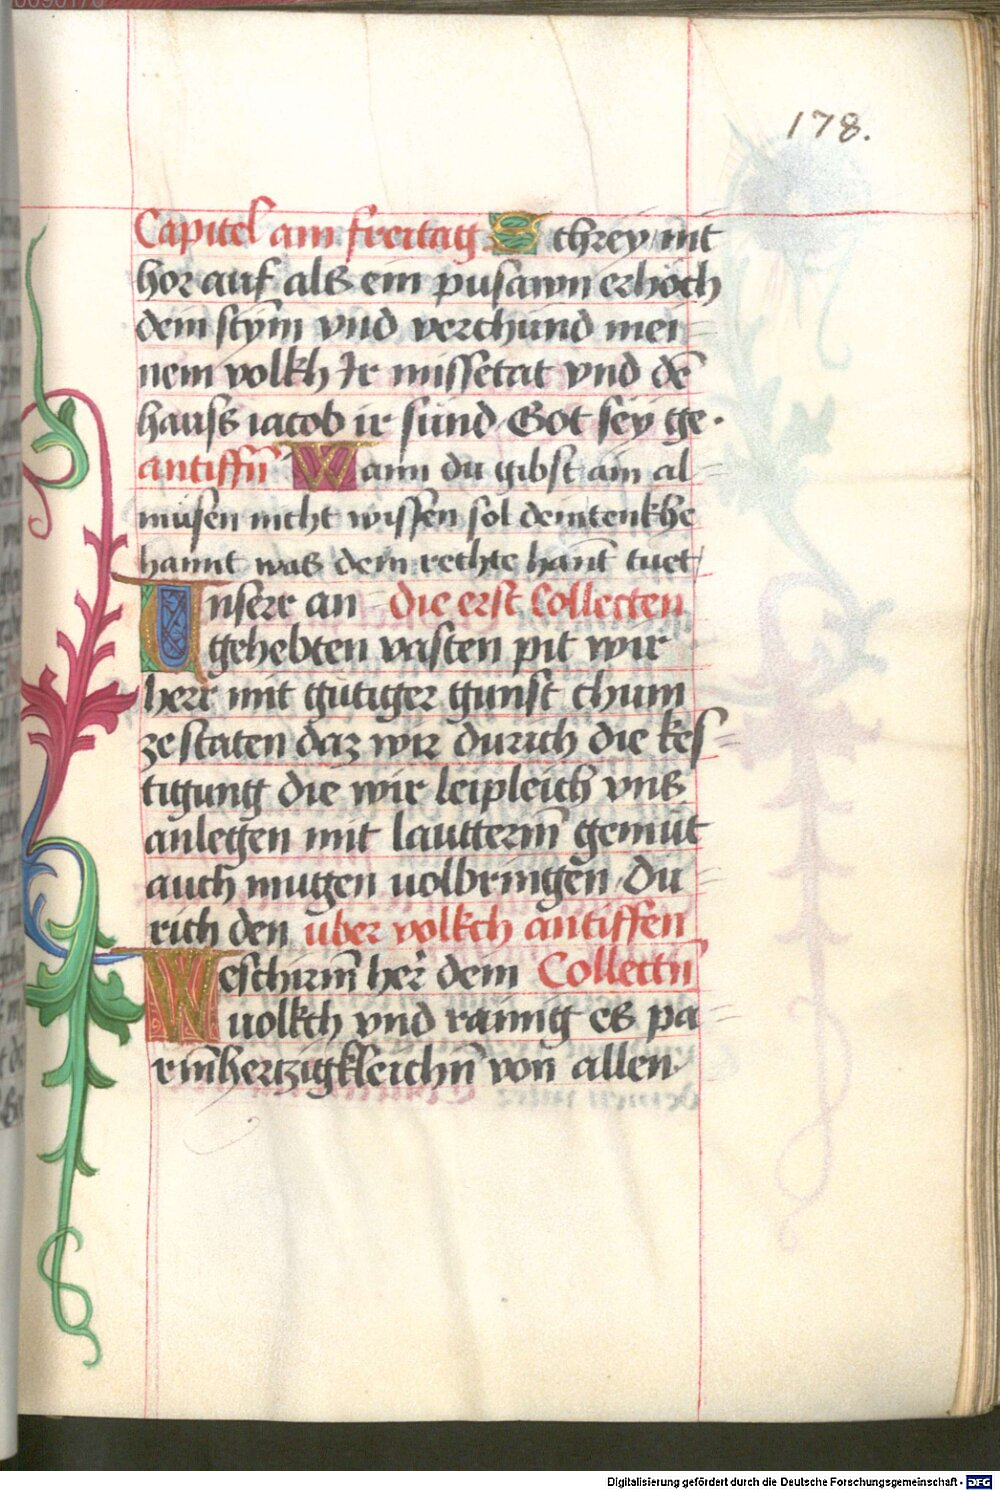 178.
Capitel am freitag Schrey nit
hor auf als ein pusawn erhöch
dein stym vnd verchünd mei
nem volkh Ir missetat vnd dē
hauss iacob ir sünd Got sey ge·
antiffn̄ Wann du gibst ain al
müsen nicht wissen sol dein tenkhe
hannt was dein rechte hannt tuet
Unsere an Die erst Collecten
gehebten vasten pit wir
herr mit gütiger gunst chum
ze staten daz wir durich die kes
tigung die wir leipleich vns
anlegen mit lautterm̄ gemüt
auch mugen uolbringen Du
rich den über volkch antiffen
Weschirm̄ her dein Collectn̄
uolkch vnd rainig es pa
rm̄hertzigkleichn̄ von allen
Digitalisierung gefördert durch die Deutsche Forschungsgemeinschaft - DFG